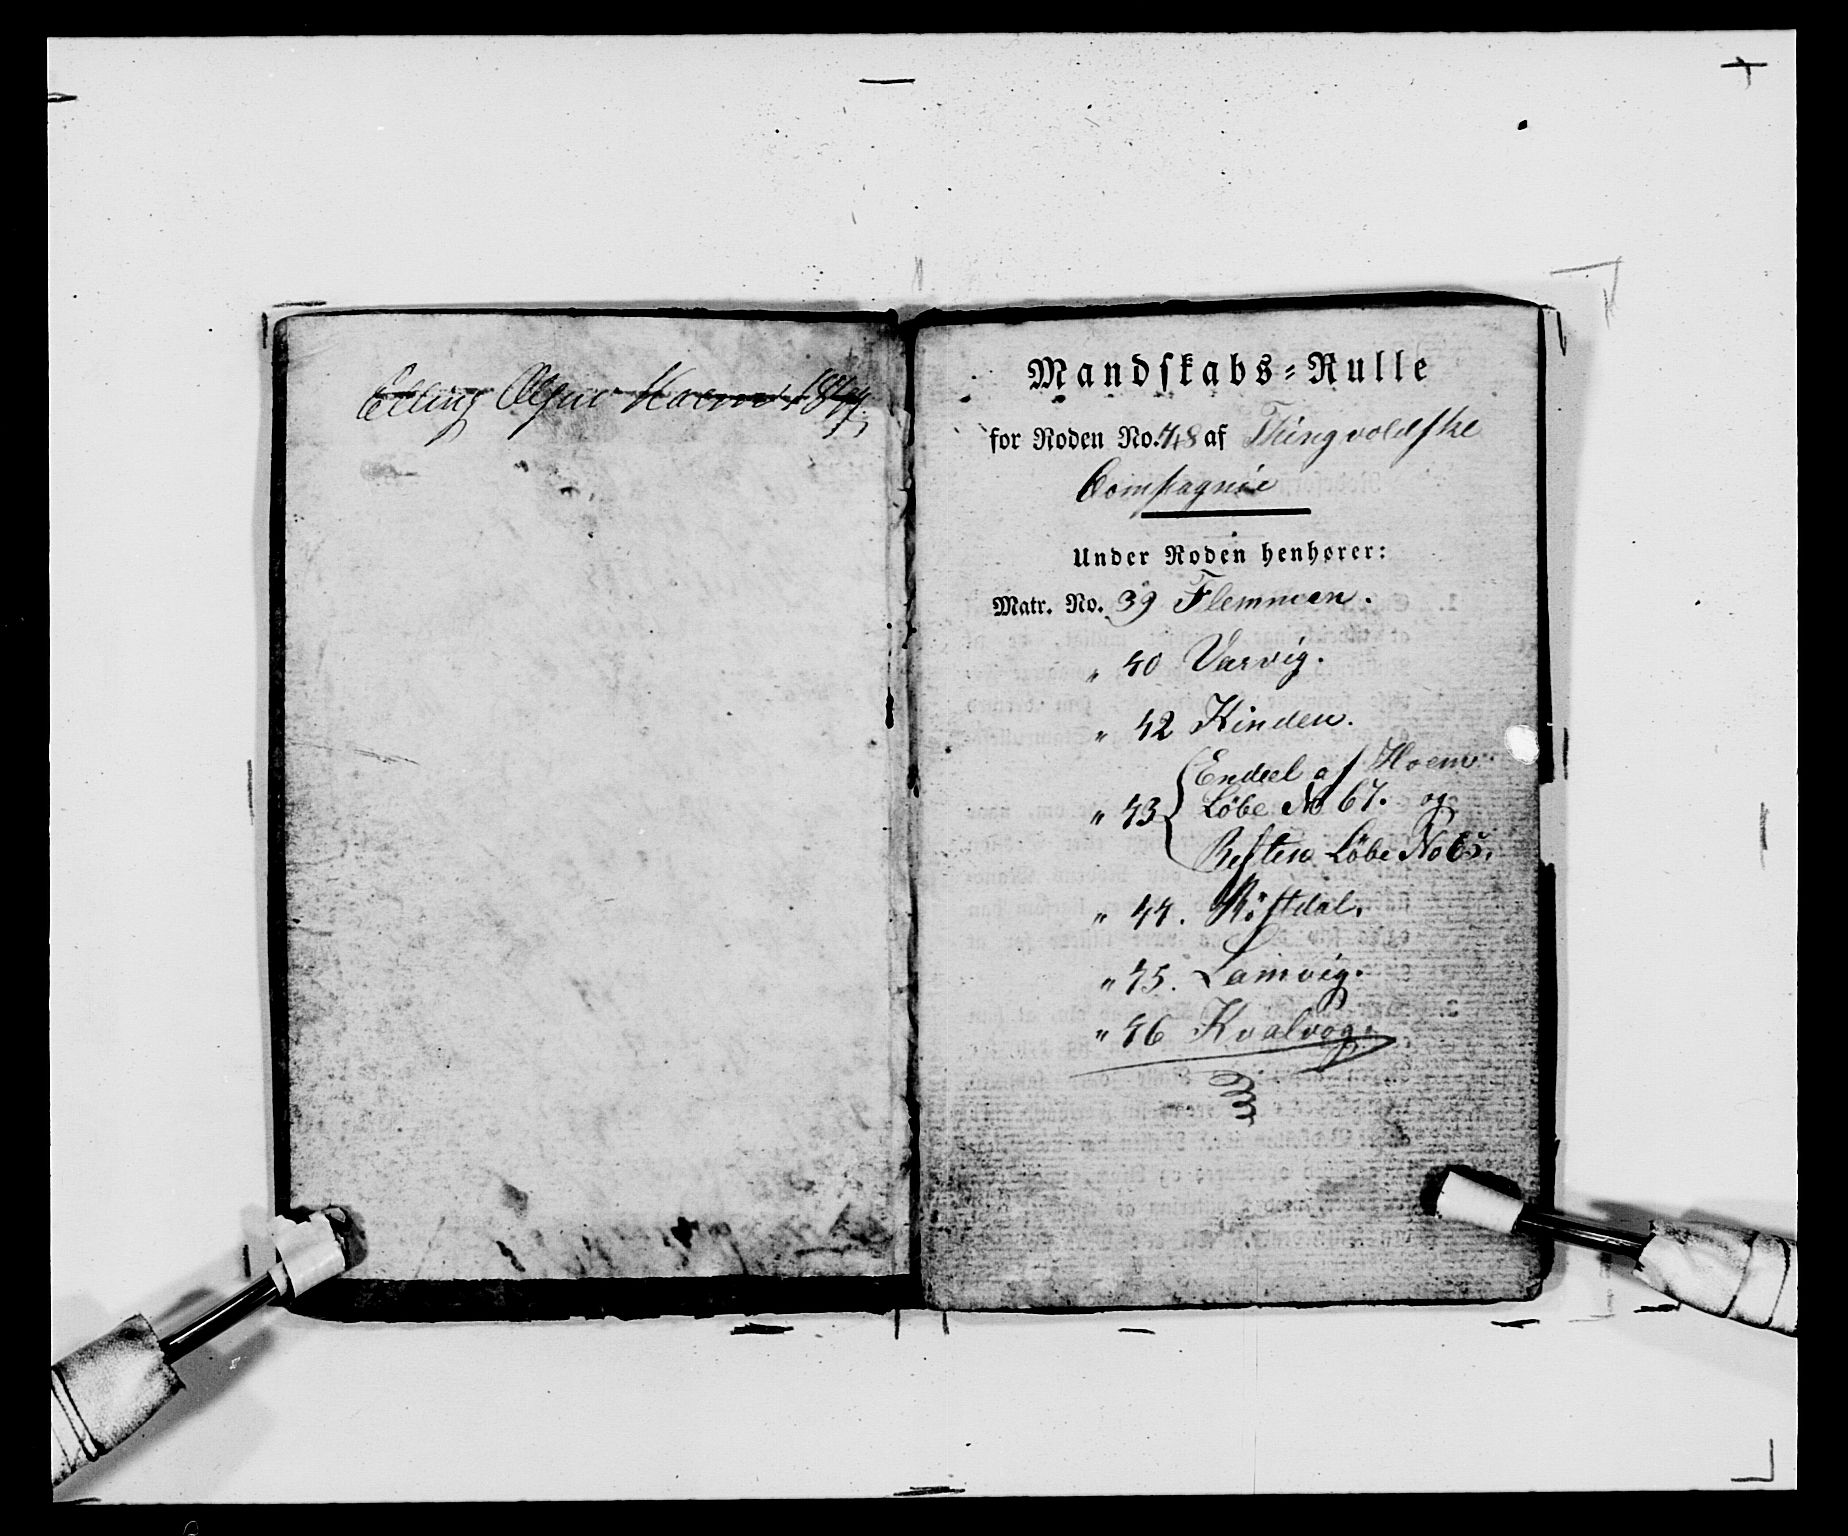 Elling Olsen Hoem 1844.
Mandskabs-Rulle
for Roden No. 48 af Tingvoldske
Compagnie
Under Roden henhører:
Matr. No. 39 Flemmen.
" 40 Varvig.
" 42 Kinden.
" 43 { Endeel af Hoem
Löbe No 67. og
Resten Löbe No 65.
" 44. Röttdal.
" 45. Lamvig.
" 46 Kvalvog.